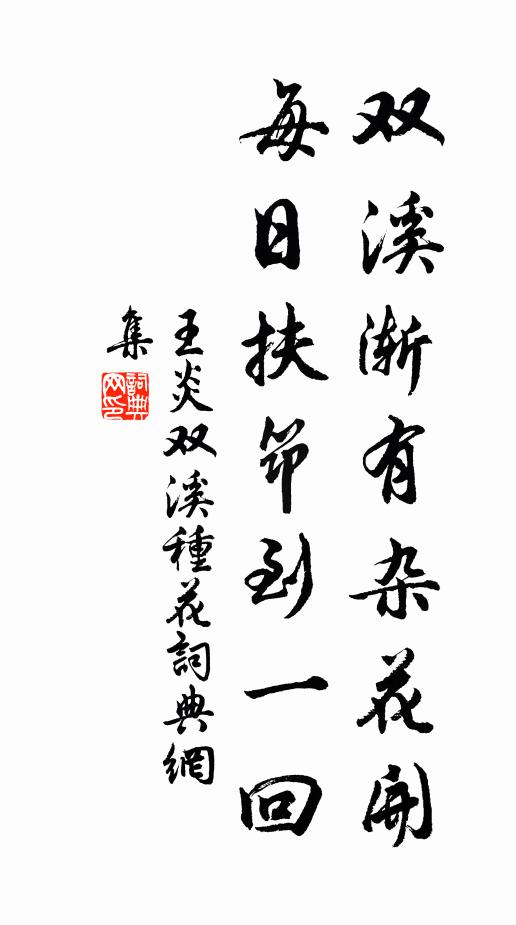 双溪渐有杂花開
每日扶筇到一回
王炎双溪種花詞典網
集
詞典网印